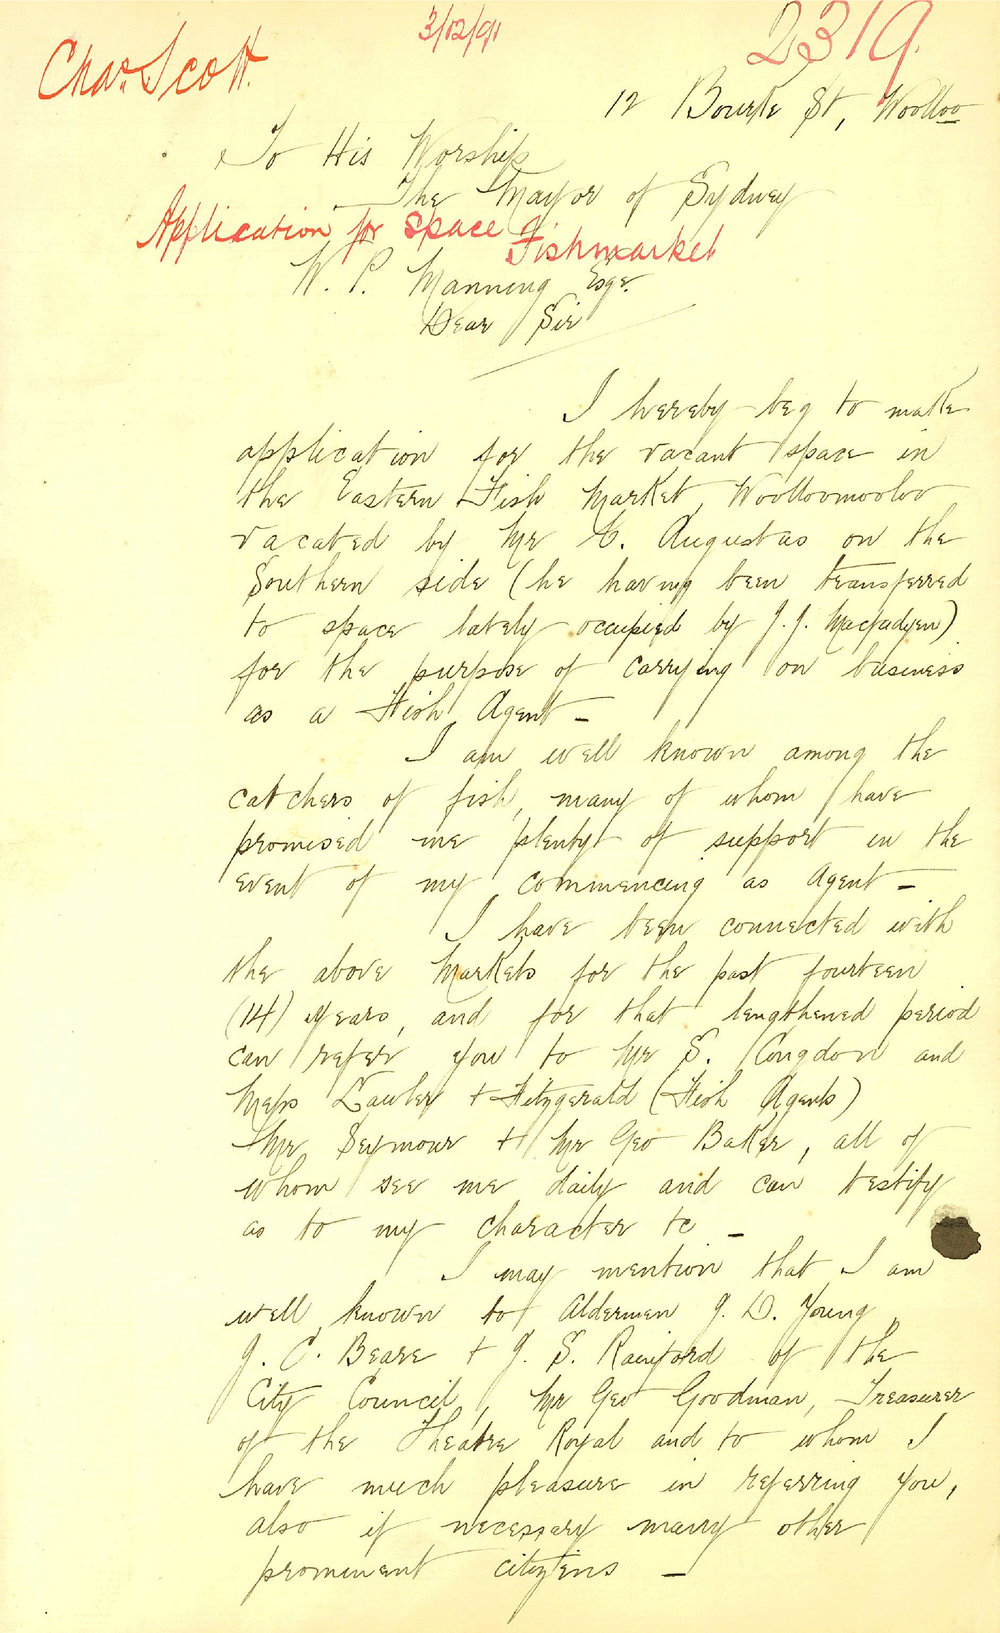 3/12/91
2319
Chas. Scott.
12 Bourke St, Woolloo
To His Worship
The Mayor of Sydney
Application for space Fishmarket
W. P. Manning Esqr.
Dear Sir
I hereby beg to make
application for the vacant space in
the Eastern Fish Market, Woolloomooloo
vacated by Mr C. Augustas on the
Southern side (he having been transferred
to space lately occupied by J. J. Macfadyen)
for the purpose of carrying on business
as a Fish Agent –
I am well known among the
catchers of fish, many of whom have
promised me plenty of support in the
event of my commencing as Agent –
I have been connected with
the above Markets for the past fourteen
(14) years, and for that lengthened period
can refer you to Mr S. Congdon and
Mess Lawler + Fitzgerald (Fish Agents)
Mr Seymour + Mr Geo Baker, all of
whom see me daily and can testify
as to my character tc –
I may mention that I am
well known to Aldermen J. D. Young,
J. C. Beare + J. S. Rainford of the
City Council, Mr Geo Goodman, Treasurer
of the Theatre Royal and to whom I
have much pleasure in referring you,
also if necessary many other
prominent citizens –